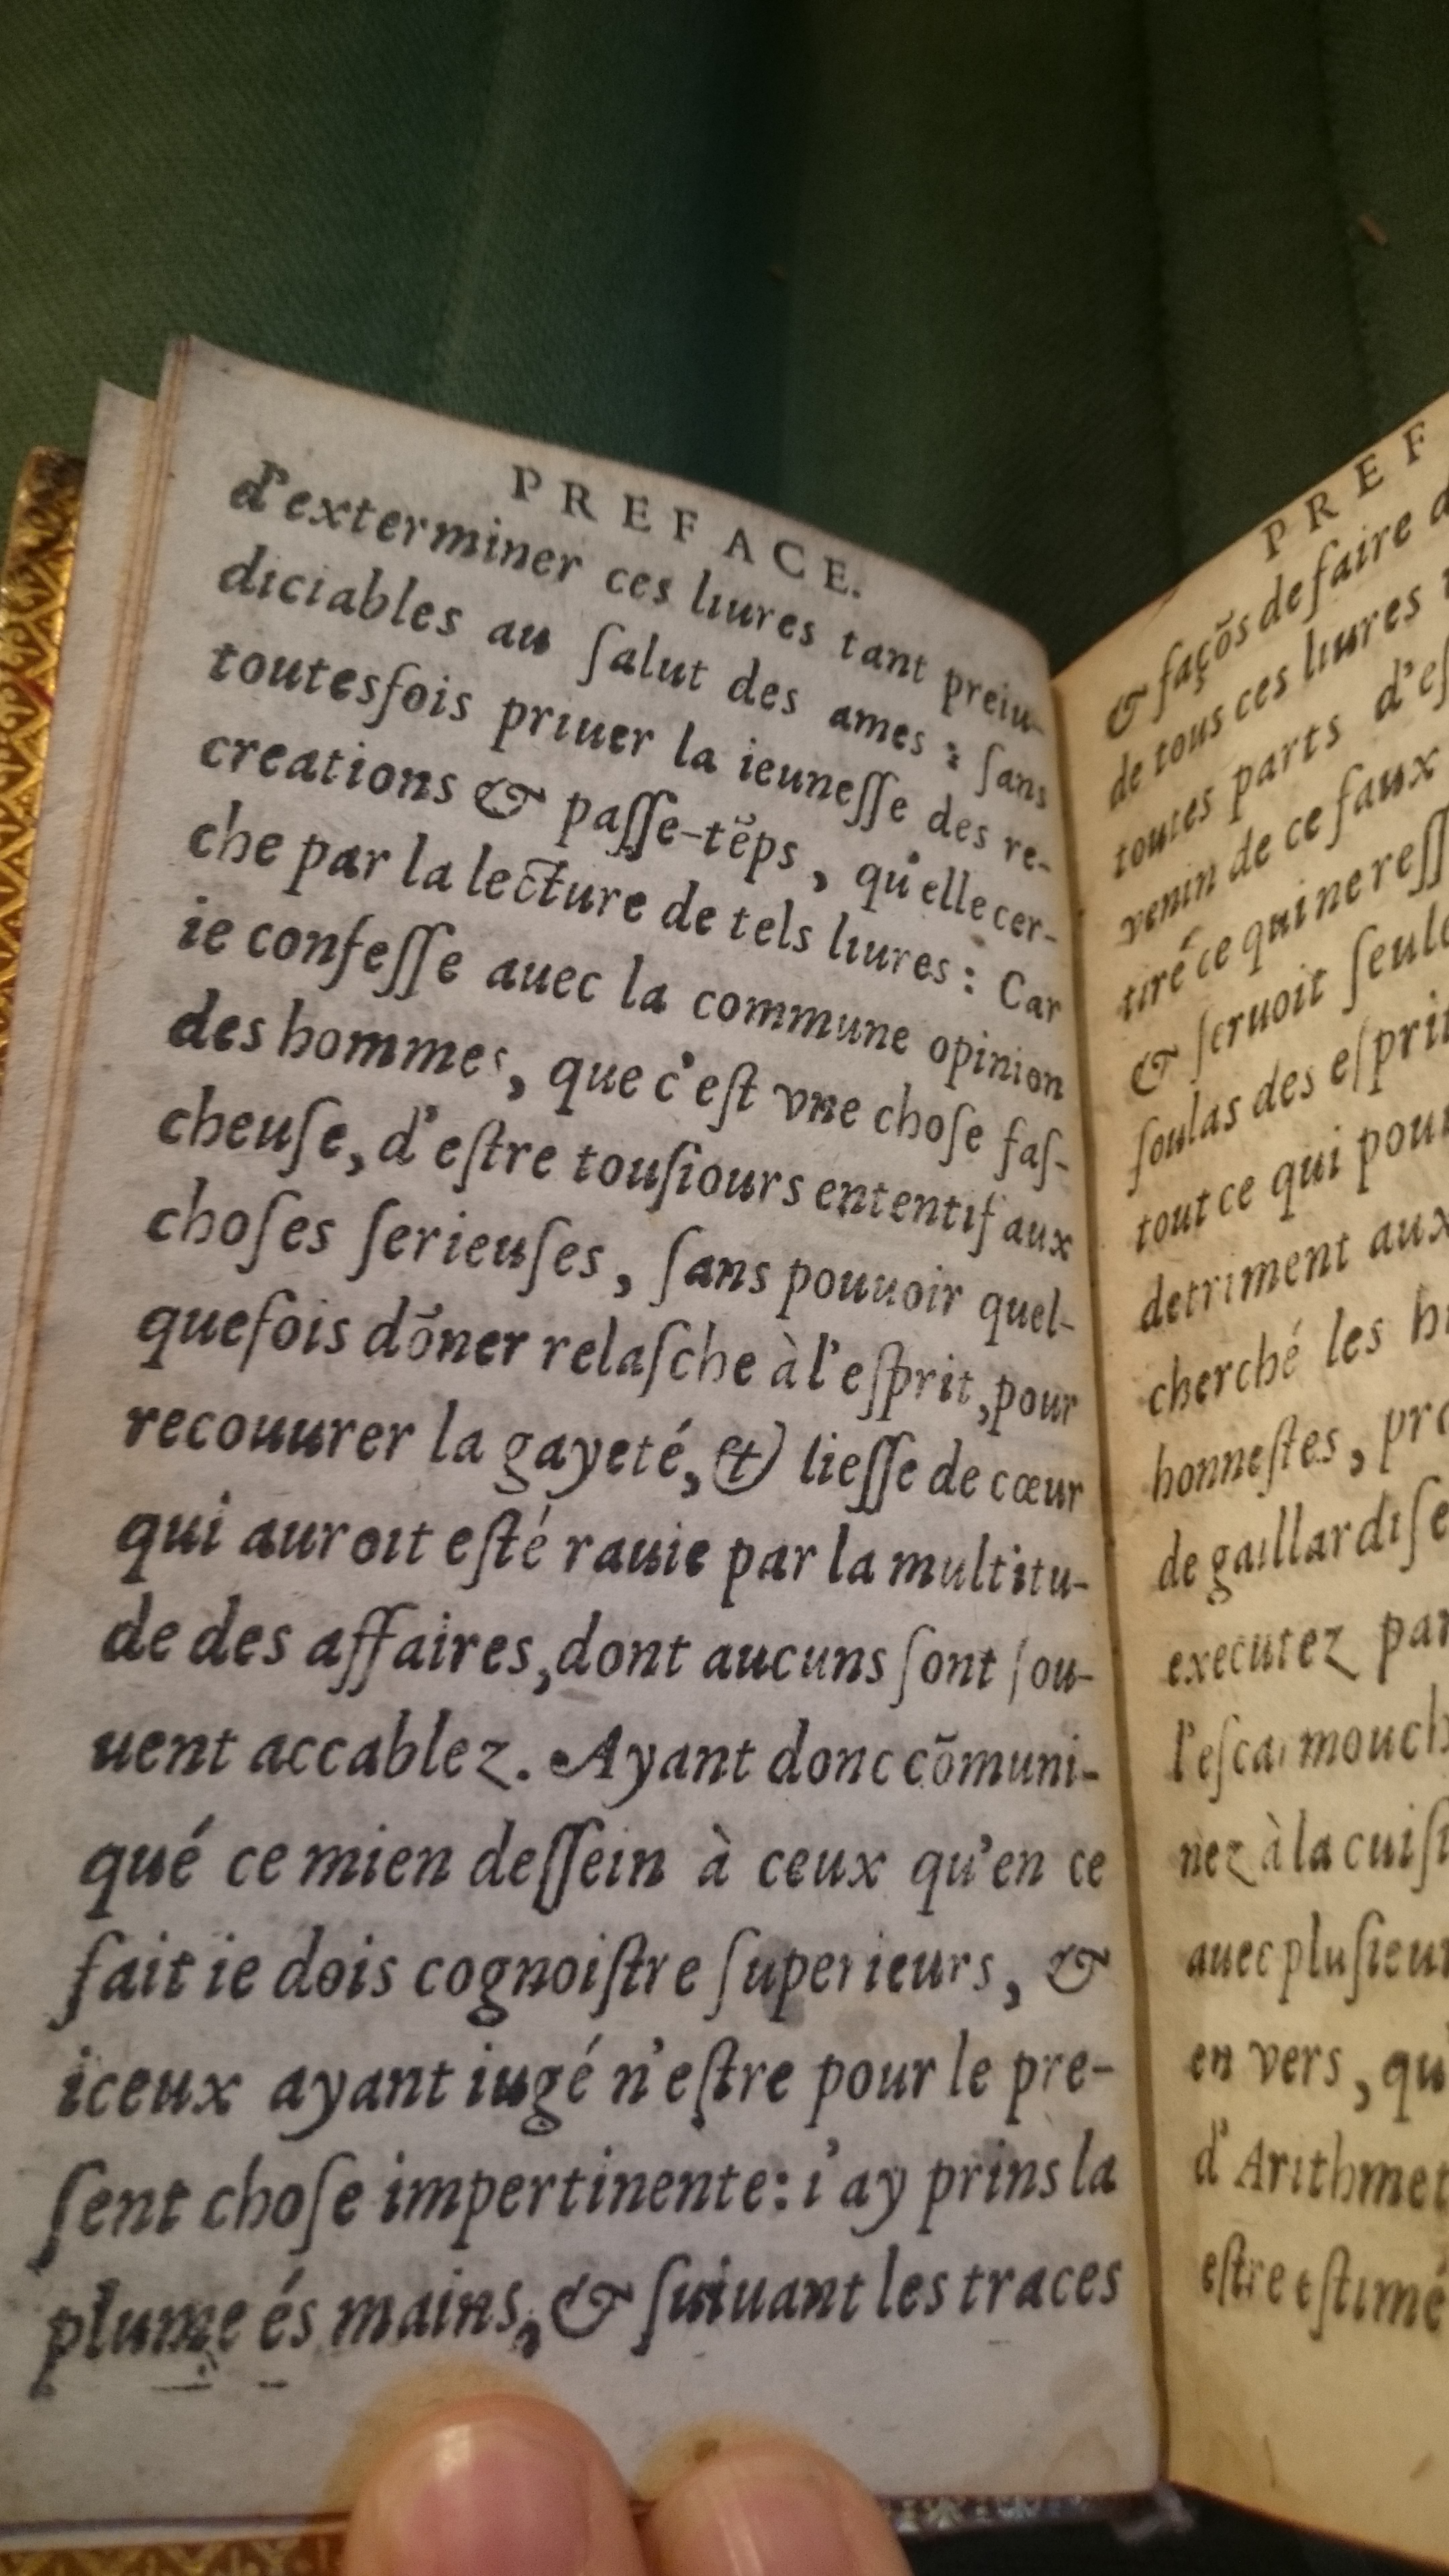 PREFACE.
d'exterminer ces liures tant preiu-
diciables au ſalut des ames : ſans
toutesfois priuer la ieuneſſe des re-
creations & paſſe-tẽps, qu'elle cer-
che par la lecture de tels liures : Car
ie confeſſe auec la commune opinion
des hommes, que c'eſt vne choſe faſ-
cheuſe, d'eſtre touſiours ententif aux
choſes ſerieuſes, ſans pouuoir quel-
quefois dõner relaſche à l'eſprit, pour
recouurer la gayeté, & lieſſe de cœur
qui auroit eſté rauie par la multitu-
de des affaires, dont aucuns ſont ſou-
uent accablez. Ayant donc cõmuni-
qué ce mien deſſein à ceux qu'en ce
fait ie dois cognoiſtre ſuperieurs, &
iceux ayant iugé n'eſtre pour le pre-
ſent choſe impertinente: i'ay prins la
plume és mains, & ſuiuant les traces
PREF
& façõs de faire d
de tous ces liures
toutes parts d'eſ
venin de ce faux
tiré ce qui ne reſſ
& ſeruoit ſeule
ſoulas des eſprit
tout ce qui pour
detriment aux
cherché les h
honneſtes, pro
de gaillardiſe
executez par
l'eſcarmouch
nez à la cuiſi
auec pluſieur
en vers, qu
d'Arithmet
eſtre eſtimé